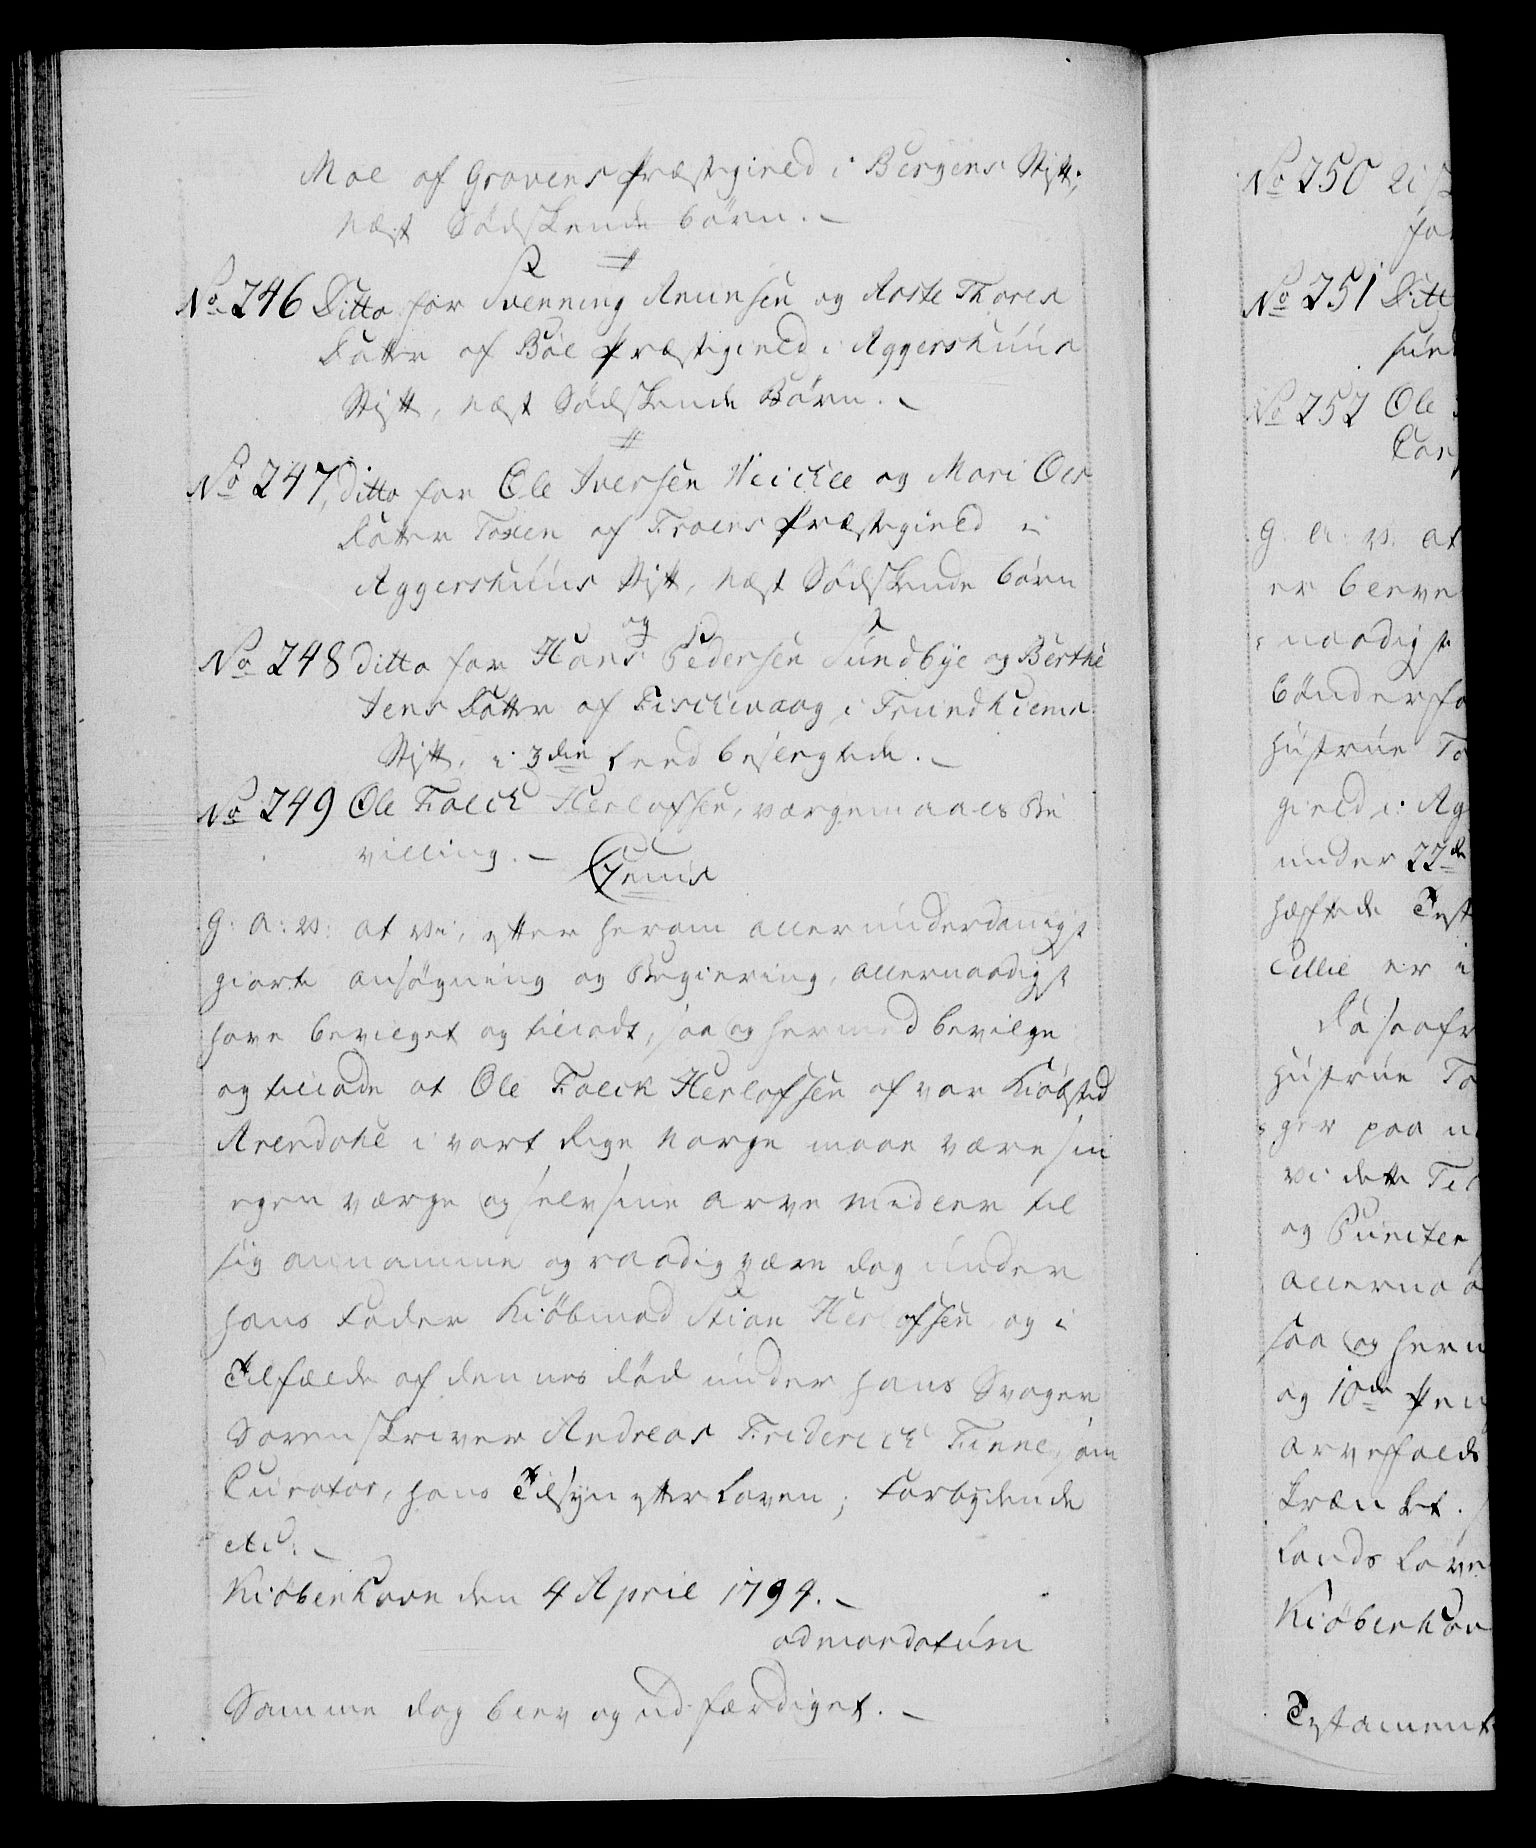 Moe af Gravens Præstegield i Bergens Stift,
næst Sødskende børn.
No 246 Ditto for Svenning Anunsen og Aaste Thores
Datter af Bøe Præstegield i Aggershuus
Stift, næst Sødskende Børn.
No 247, ditto for Ole Iversen Weichle og Mari Ols
Datter Toxen af Froens Præstegield i
Aggershuus Stift, næst Sødskende børn
og
No 248 ditto for Hans Pedersen Sundbye og Berthe
Jens Datter af Fischevaag i Trundhiems
Stift, i 3die Leed besvegtede.
No 249 Ole Falch Herlofsen, værgemaals Be
villing.
Genus
G: A: V: at Vi, efter herom allerunderdanigst
giorte ansøgning og Begiering, allernaadigst
have bevilget og tilladt, saa og hermed bevilge
og tillade at Ole Falck Herlofsen af vor Kiøbsted
Arendahl i vort Rige Norge maae være sin
egen værge og selv sine arve midler til
sig annamme og raadig være dog under
hans Fader Kiøbmand Stian Herlofsen og i
Tilfælde af dennes død under hans Svoger
Sorenskriver Andreas Friderich Finne, som
Curator, hans Tilsyn efter Loven; Forbydende
etc:
Kiøbenhavn den 4 April 1794.
ad mandatum
Samme dag blev og udfærdiget.
No 250
No 251 Ditt
No 252 Ole
G: A: V: at
er bleve
naadigst
bønderfo
Hustrue To
gield i Ag
under 22de
hæftede Test
Cillie er i
Da saafr
Hustrue To
ger paa
vi dette Til
og Puncter
allernaa
saa og herm
og 10de Pen
arvefald
krænket.
Lands Lov
Kiøbenhav
Testament